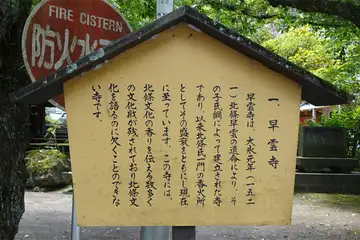 FIRE CISTERN
防火水
一、早雲寺
早雲寺は、大永元年(一五二
一)北條早雲の遺命により、そ
の子氏綱によって建立された寺
であり、以来北條氏一門の香火所
としてその盛衰をともにし現在
に至っています。この寺には、
北條文化の香りを伝える数多く
の文化財が残されており北條文
化を語るのに欠くことのできな
い寺です。